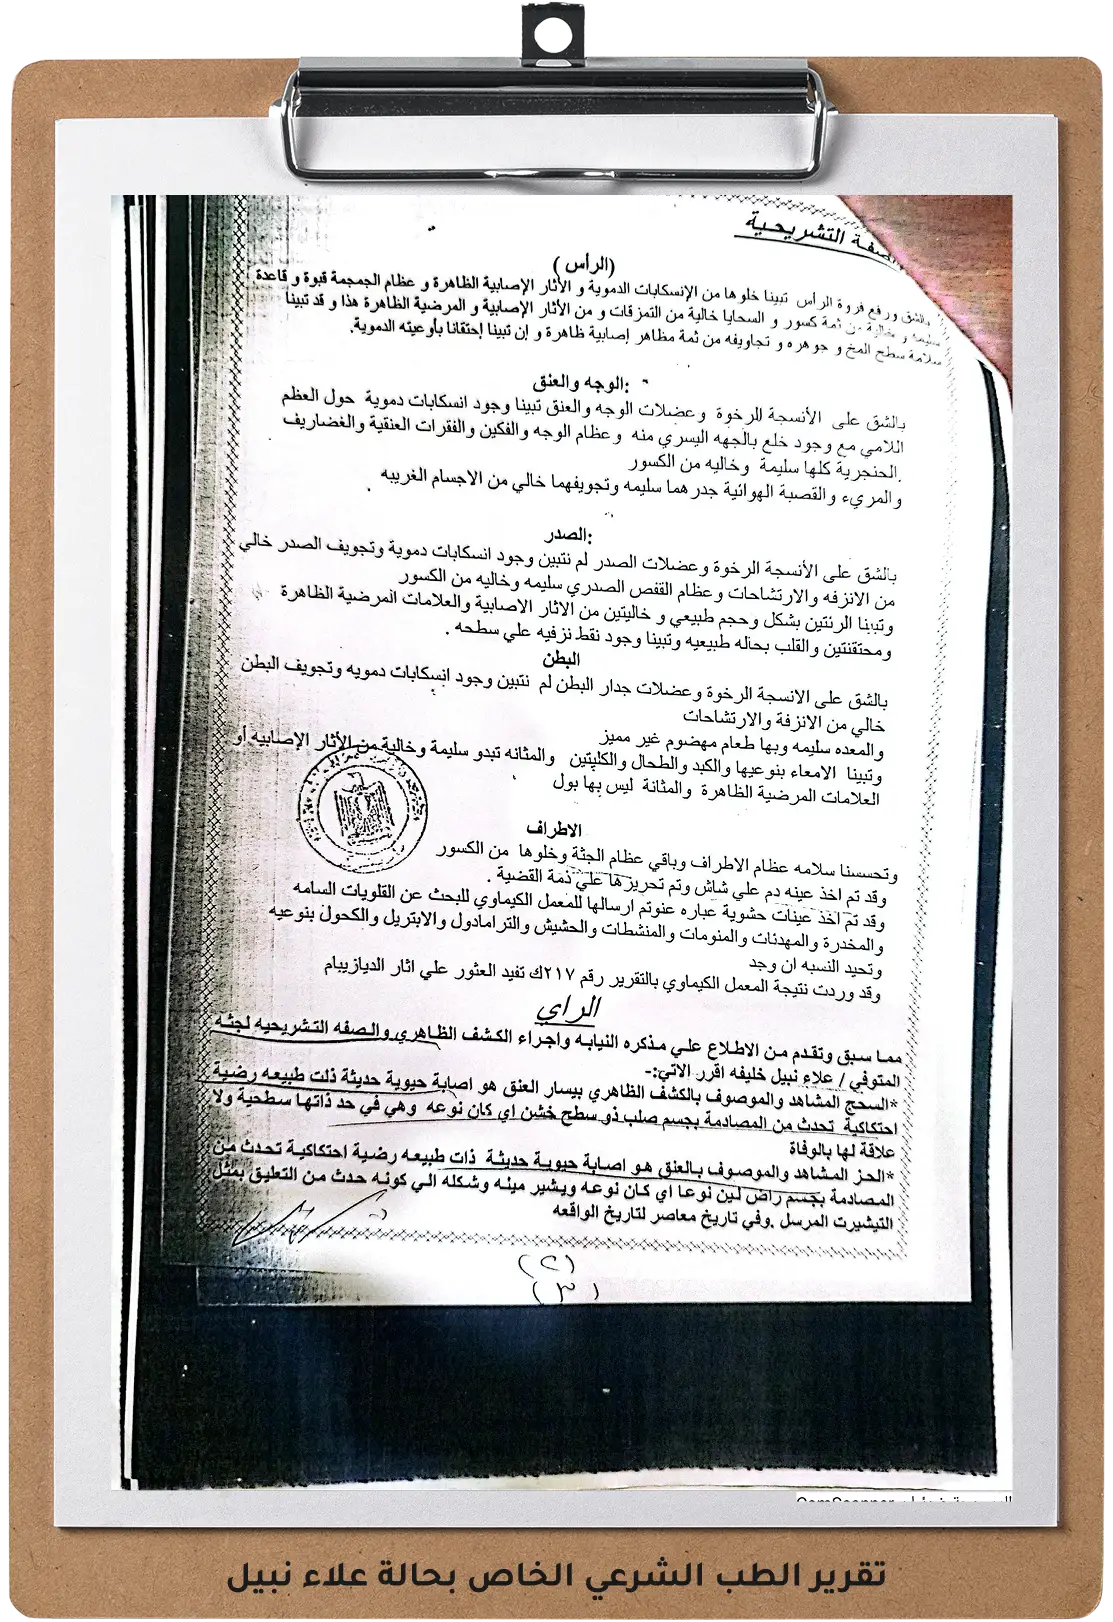 الصفة التشريحية
(الرأس)
بالشق ورفع فروة الرأس تبينا خلوها من الإنسكابات الدموية و الأثار الإصابية الظاهرة و عظام الجمجمة قبوة و قاعدة
سليمه و خالية من ثمة كسور و السحايا خالية من التمزقات و من الأثار الإصابية و المرضية الظاهرة هذا و قد تبينا
سلامة سطح المخ و جوهره و تجاويفه من ثمة مظاهر إصابية ظاهرة و إن تبينا إحتقانا بأوعيته الدموية.
الوجه والعنق:
بالشق على الأنسجة الرخوة وعضلات الوجه والعنق تبينا وجود انسكابات دموية حول العظم
اللامي مع وجود خلع بالجهه اليسري منه وعظام الوجه والفكين والفقرات العنقية والغضاريف
الحنجرية كلها سليمة وخاليه من الكسور.
والمريء والقصبة الهوائية جدرهما سليمه وتجويفهما خالي من الاجسام الغريبه .
الصدر:
بالشق على الأنسجة الرخوة وعضلات الصدر لم نتبين وجود انسكابات دموية وتجويف الصدر خالي
من الانزفه والارتشاحات وعظام القفص الصدري سليمه وخاليه من الكسور
وتبينا الرئتين بشكل وحجم طبيعي و خاليتين من الاثار الاصابية والعلامات المرضية الظاهرة
ومحتقنتين والقلب بحاله طبيعيه وتبينا وجود نقط نزفيه علي سطحه .
البطن
بالشق على الانسجة الرخوة وعضلات جدار البطن لم نتبين وجود انسكابات دمويه وتجويف البطن
خالي من الانزفة والارتشاحات
والمعده سليمه وبها طعام مهضوم غير مميز
وتبينا الامعاء بنوعيها والكبد والطحال والكليتين والمثانه تبدو سليمة وخالية من الأثار الإصابيه أو
العلامات المرضية الظاهرة والمثانة ليس بها بول
الاطراف
وتحسسنا سلامه عظام الاطراف وباقي عظام الجثة وخلوها من الكسور
وقد تم اخذ عينه دم علي شاش وتم تحريزها علي ذمة القضية .
وقد تم اخذ عينات حشوية عباره عنوتم ارسالها للمعمل الكيماوي للبحث عن القلويات السامه
والمخدرة والمهدئات والمنومات والمنشطات والحشيش والترامادول والابتريل والكحول بنوعيه
وتحيد النسبه ان وجد
وقد وردت نتيجة المعمل الكيماوي بالتقرير رقم ٢١٧ك تفيد العثور علي اثار الديازيبام
الراي
مما سبق وتقدم من الاطلاع علي مذكره النيابه واجراء الكشف الظاهري والصفه التشريحيه لجثه
المتوفي / علاء نبيل خليفه اقرر الاتي:-
*السحج المشاهد والموصوف بالكشف الظاهري بيسار العنق هو اصابة حيوية حديثة ذلت طبيعه رضية
احتكاكية تحدث من المصادمة بجسم صلب ذو سطح خشن اي كان نوعه وهي في حد ذاتها سطحية ولا
علاقة لها بالوفاة
*الحز المشاهد والموصوف بالعنق هو اصابة حيوية حديثة ذات طبيعه رضية احتكاكية تحدث من
المصادمة بجسم راض لين نوعا اي كان نوعه ويشير مينه وشكله الي كونه حدث من التعليق بمثل
التيشيرت المرسل .وفي تاريخ معاصر لتاريخ الواقعه
(٢)
(٣)
CamScanner
تقرير الطب الشرعي الخاص بحالة علاء نبيل